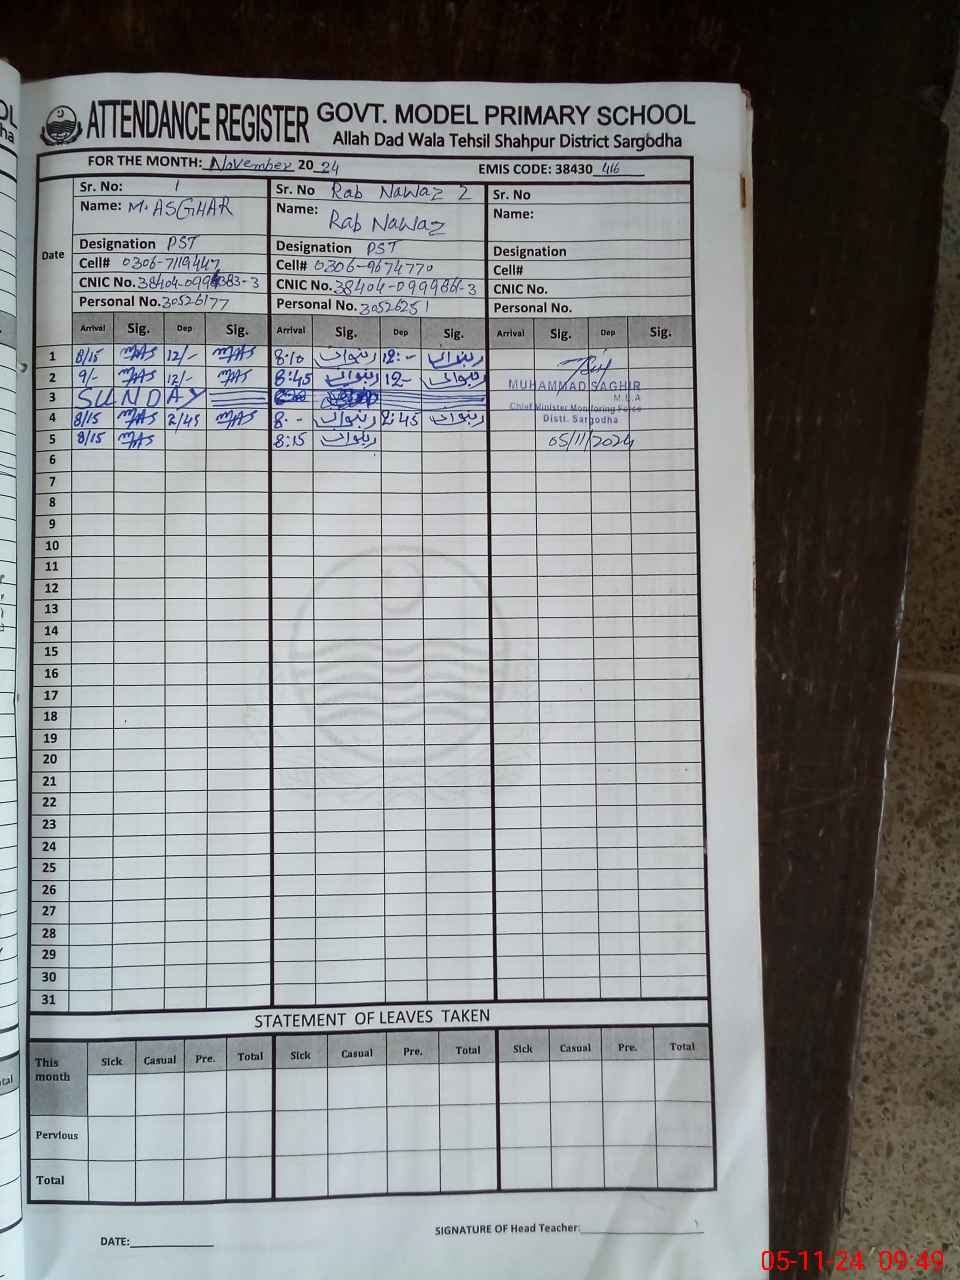 ATTENDANCE REGISTER GOVT. MODEL PRIMARY SCHOOL
Allah Dad Wala Tehsil Shahpur District Sargodha
FOR THE MONTH: November 2024 EMIS CODE: 38430 416
Date
Sr. No: 1 Sr. No Rab Nawaz 2 Sr. No
Name: M. ASGHAR Name: Rab Nawaz Name:
Designation PST Designation PST Designation
Cell# 0306-7119447 Cell# 0306-9674770 Cell#
CNIC No. CNIC No. 38404-099986-3 CNIC No.
Personal No. 30526177 Personal No. 30526251 Personal No.
Arrival Sig. Dep Sig. Arrival Sig. Dep Sig. Arrival Sig. Dep Sig.
1 8/15 MAS 12/- MAS 8:10 ربنواز 12:- ربنواز
2 9/- MAS 12/- MAS 8:45 ربنواز 12- ربنواز
MUHAMMAD SAGHIR
3 SUNDAY
M.E.A
Chief Minister Monitoring Force
4 8/15 MAS 2/45 MAS 8:-- ربنواز 2:45 ربنواز
Distt. Sargodha
5 8/15 MAS 8:15 ربنواز 05/11/2024
6
7
8
9
10
11
12
13
14
15
16
17
18
19
20
21
22
23
24
25
26
27
28
29
30
31
STATEMENT OF LEAVES TAKEN
This month Sick Casual Pre. Total Sick Casual Pre. Total Sick Casual Pre. Total
Pervious
Total
DATE: SIGNATURE OF Head Teacher:
05-11-24 09:49